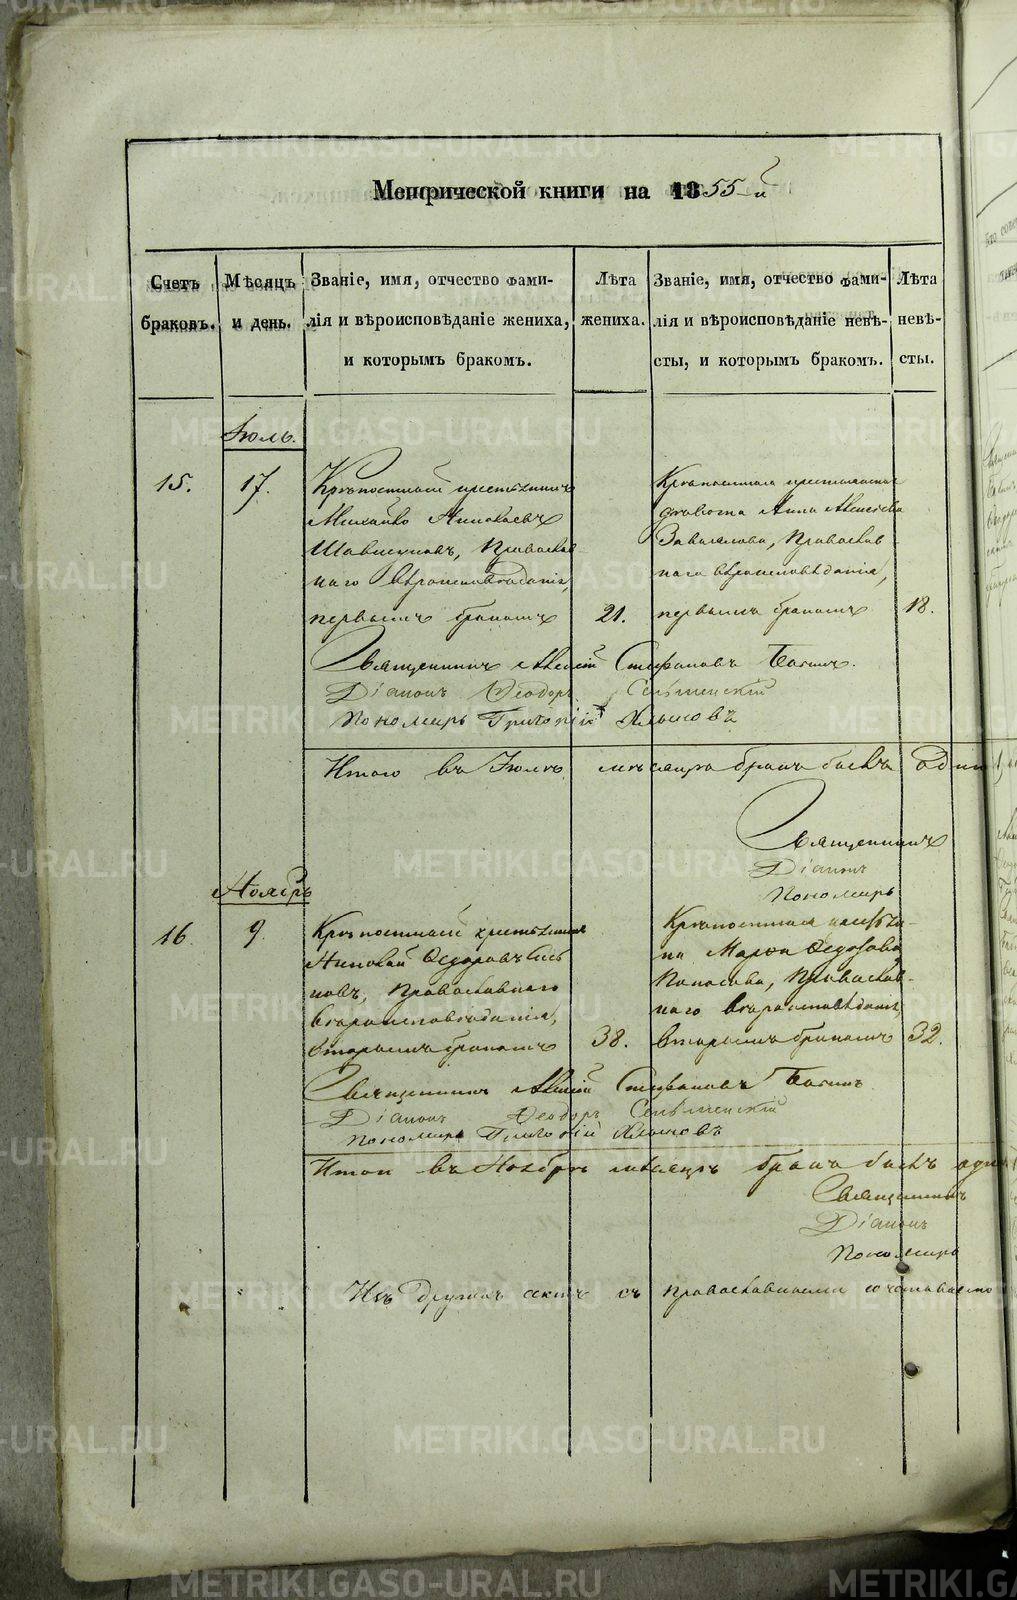 Метрической книги на 1855-й
Счетъ браковъ.
Мѣсяцъ и день.
Званіе, имя, отчество фами-
лія и вѣроисповѣданіе жениха,
и которымъ бракомъ.
Лѣта
жениха.
Званіе, имя, отчество фами-
лія и вѣроисповѣданіе невѣ-
сты, и которымъ бракомъ.
Лѣта
невѣ-
сты.
Іюль.
15.
17.
Крѣпостный крестьянинъ
Михайло Николаевъ
Православ
наго вѣроисповѣданія,
первымъ бракомъ
21.
Крѣпостная крестьянская
дѣвица Анна Алексѣева
Завьялова, Православ
наго вѣроисповѣданія,
первымъ бракомъ
18.
Священникъ Алексій Стефановъ
Діаконъ Ѳеодоръ
Пономарь Григорій Хлыновъ
Итого въ Іюлѣ мѣсяцѣ бракъ былъ одинъ
Священникъ
Діаконъ
Пономарь
Ноябрь
16.
9.
Крѣпостный крестьянинъ
Николай Ѳедоровъ
новъ, Православнаго
вѣроисповѣданія,
вторымъ бракомъ
38.
Крѣпостная
Марѳа Ѳедорова
Православ-
наго вѣроисповѣданія,
вторымъ бракомъ
32.
Священникъ Алексій Стефановъ
Діаконъ Ѳеодоръ
Пономарь Григорій Хлыновъ
Итого въ Ноябрѣ мѣсяцѣ бракъ былъ одинъ
Священникъ
Діаконъ
Пономарь
съ православными
METRIKI.GASO-URAL.RU